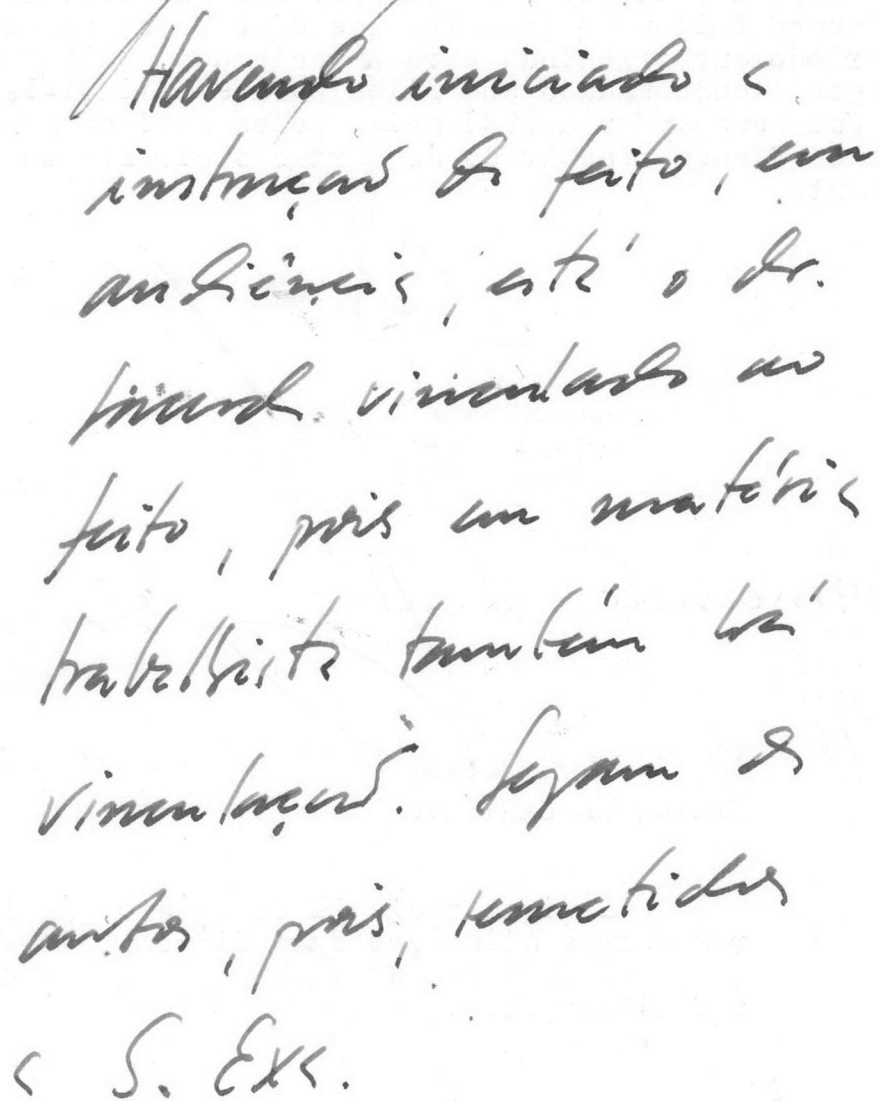 Havendo iniciado a
instrução do feito, em
audiência, está o dr.
vinculado ao
feito, pois em matéria
trabalhista também há
vinculação. Sejam os
autos, pois, remetidos
a S. Exa.